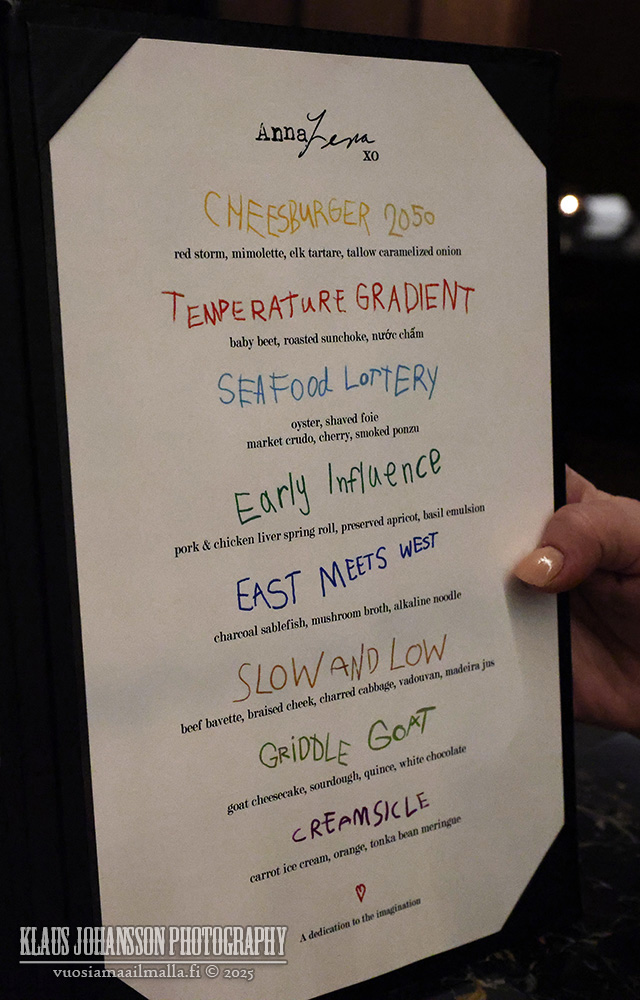 AnnaLena
XO
CHEESBURGER 2050
red storm, mimolette, elk tartare, tallow caramelized onion
TEMPERATURE GRADIENT
baby beet, roasted sunchoke, nước chấm
SEAFOOd LOTTERY
oyster, shaved foie
market crudo, cherry, smoked ponzu
Early Influence
pork & chicken liver spring roll, preserved apricot, basil emulsion
EAST MEETS WEST
charcoal sablefish, mushroom broth, alkaline noodle
SLOW AND LOW
beef bavette, braised cheek, charred cabbage, vadouvan, madeira jus
GRIDDLE GOAT
goat cheesecake, sourdough, quince, white chocolate
CREAMSICLE
carrot ice cream, orange, tonka bean meringue
A dedication to the imagination
KLAUS JOHANSSON PHOTOGRAPHY
vuosiamaailmalla.fi © 2025